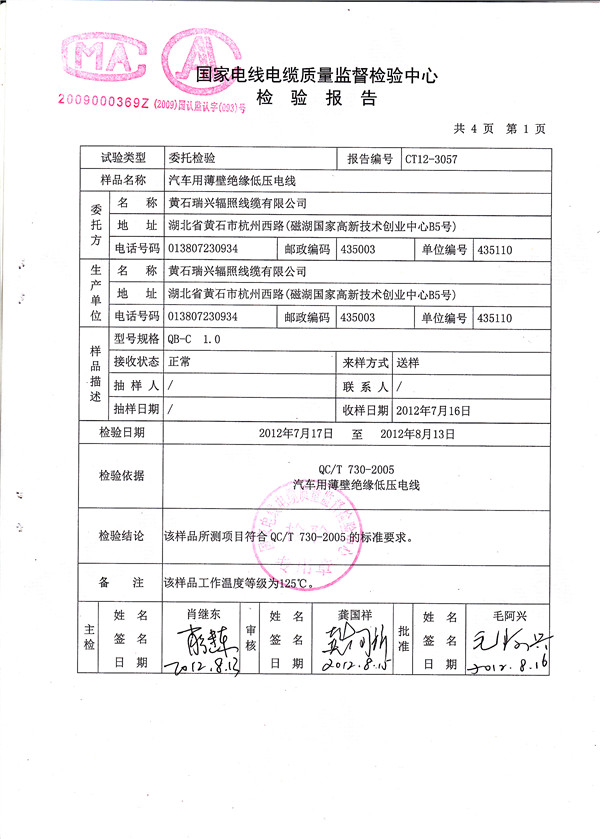 MA
2009000369Z (2009)国认监认字(093)号
国家电线电缆质量监督检验中心
检 验 报 告
共 4 页 第 1 页
试验类型 委托检验 报告编号 CT12-3057
样品名称 汽车用薄壁绝缘低压电线
委托方
名 称 黄石瑞兴辐照线缆有限公司
地 址 湖北省黄石市杭州西路(磁湖国家高新技术创业中心B5号)
电话号码 013807230934 邮政编码 435003 单位编号 435110
生产单位
名 称 黄石瑞兴辐照线缆有限公司
地 址 湖北省黄石市杭州西路(磁湖国家高新技术创业中心B5号)
电话号码 013807230934 邮政编码 435003 单位编号 435110
样品描述
型号规格 QB-C 1.0
接收状态 正常 来样方式 送样
抽 样 人 / 联 系 人 /
抽样日期 / 收样日期 2012年7月16日
检验日期 2012年7月17日 至 2012年8月13日
检验依据 QC/T 730-2005
汽车用薄壁绝缘低压电线
检验结论 该样品所测项目符合 QC/T 730-2005 的标准要求。
备 注 该样品工作温度等级为125℃。
主检 姓 名 肖继东 审核 姓 名 龚国祥 批准 姓 名 毛阿兴
签 名 签 名 签 名
日 期 2012.8.13 日 期 2012.8.15 日 期 2012.8.16